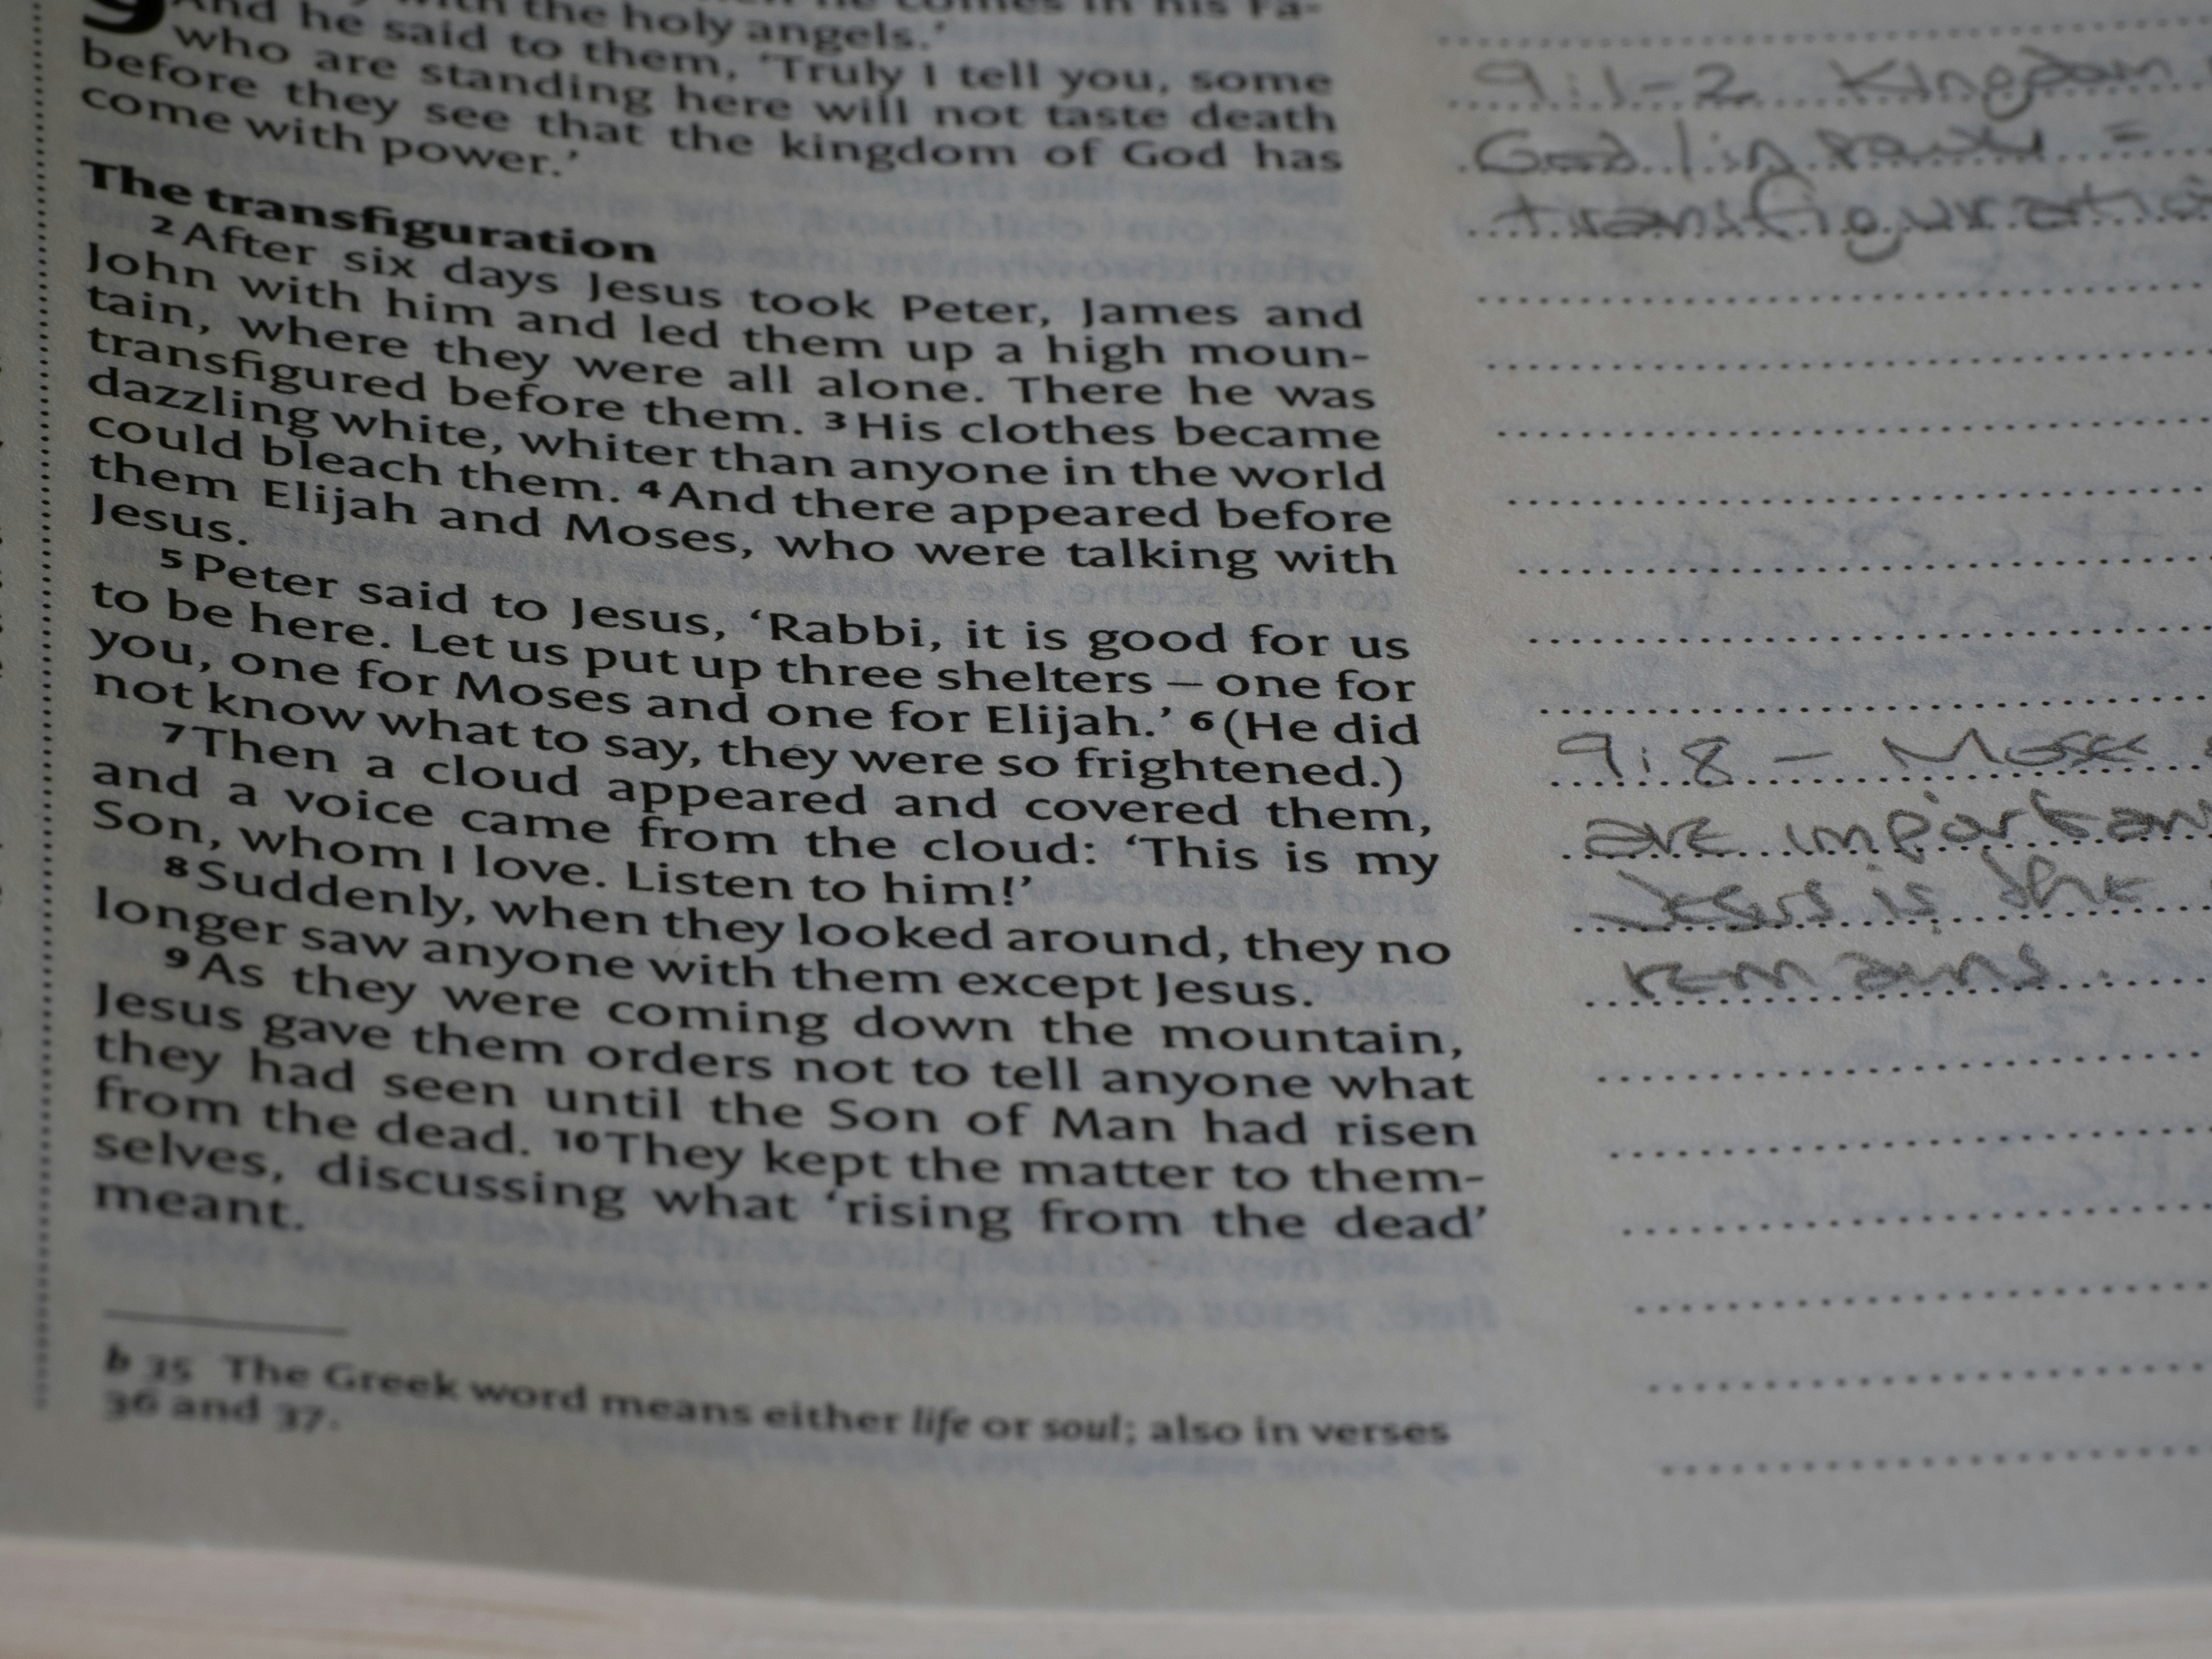 with the holy angels.'
9 And he said to them, 'Truly I tell you, some
who are standing here will not taste death
before they see that the kingdom of God has
come with power.'
The transfiguration
2 After six days Jesus took Peter, James and
John with him and led them up a high moun-
tain, where they were all alone. There he was
transfigured before them. 3 His clothes became
dazzling white, whiter than anyone in the world
could bleach them. 4 And there appeared before
them Elijah and Moses, who were talking with
Jesus.
5 Peter said to Jesus, 'Rabbi, it is good for us
to be here. Let us put up three shelters – one for
you, one for Moses and one for Elijah.' 6 (He did
not know what to say, they were so frightened.)
7 Then a cloud appeared and covered them,
and a voice came from the cloud: 'This is my
Son, whom I love. Listen to him!'
8 Suddenly, when they looked around, they no
longer saw anyone with them except Jesus.
9 As they were coming down the mountain,
Jesus gave them orders not to tell anyone what
they had seen until the Son of Man had risen
from the dead. 10 They kept the matter to them-
selves, discussing what 'rising from the dead'
meant.
b 35 The Greek word means either life or soul; also in verses
36 and 37.
9:1-2 Kingdom
God in =
transfiguratio
9:8 - Moses
are importan
Jesus is the
remains.